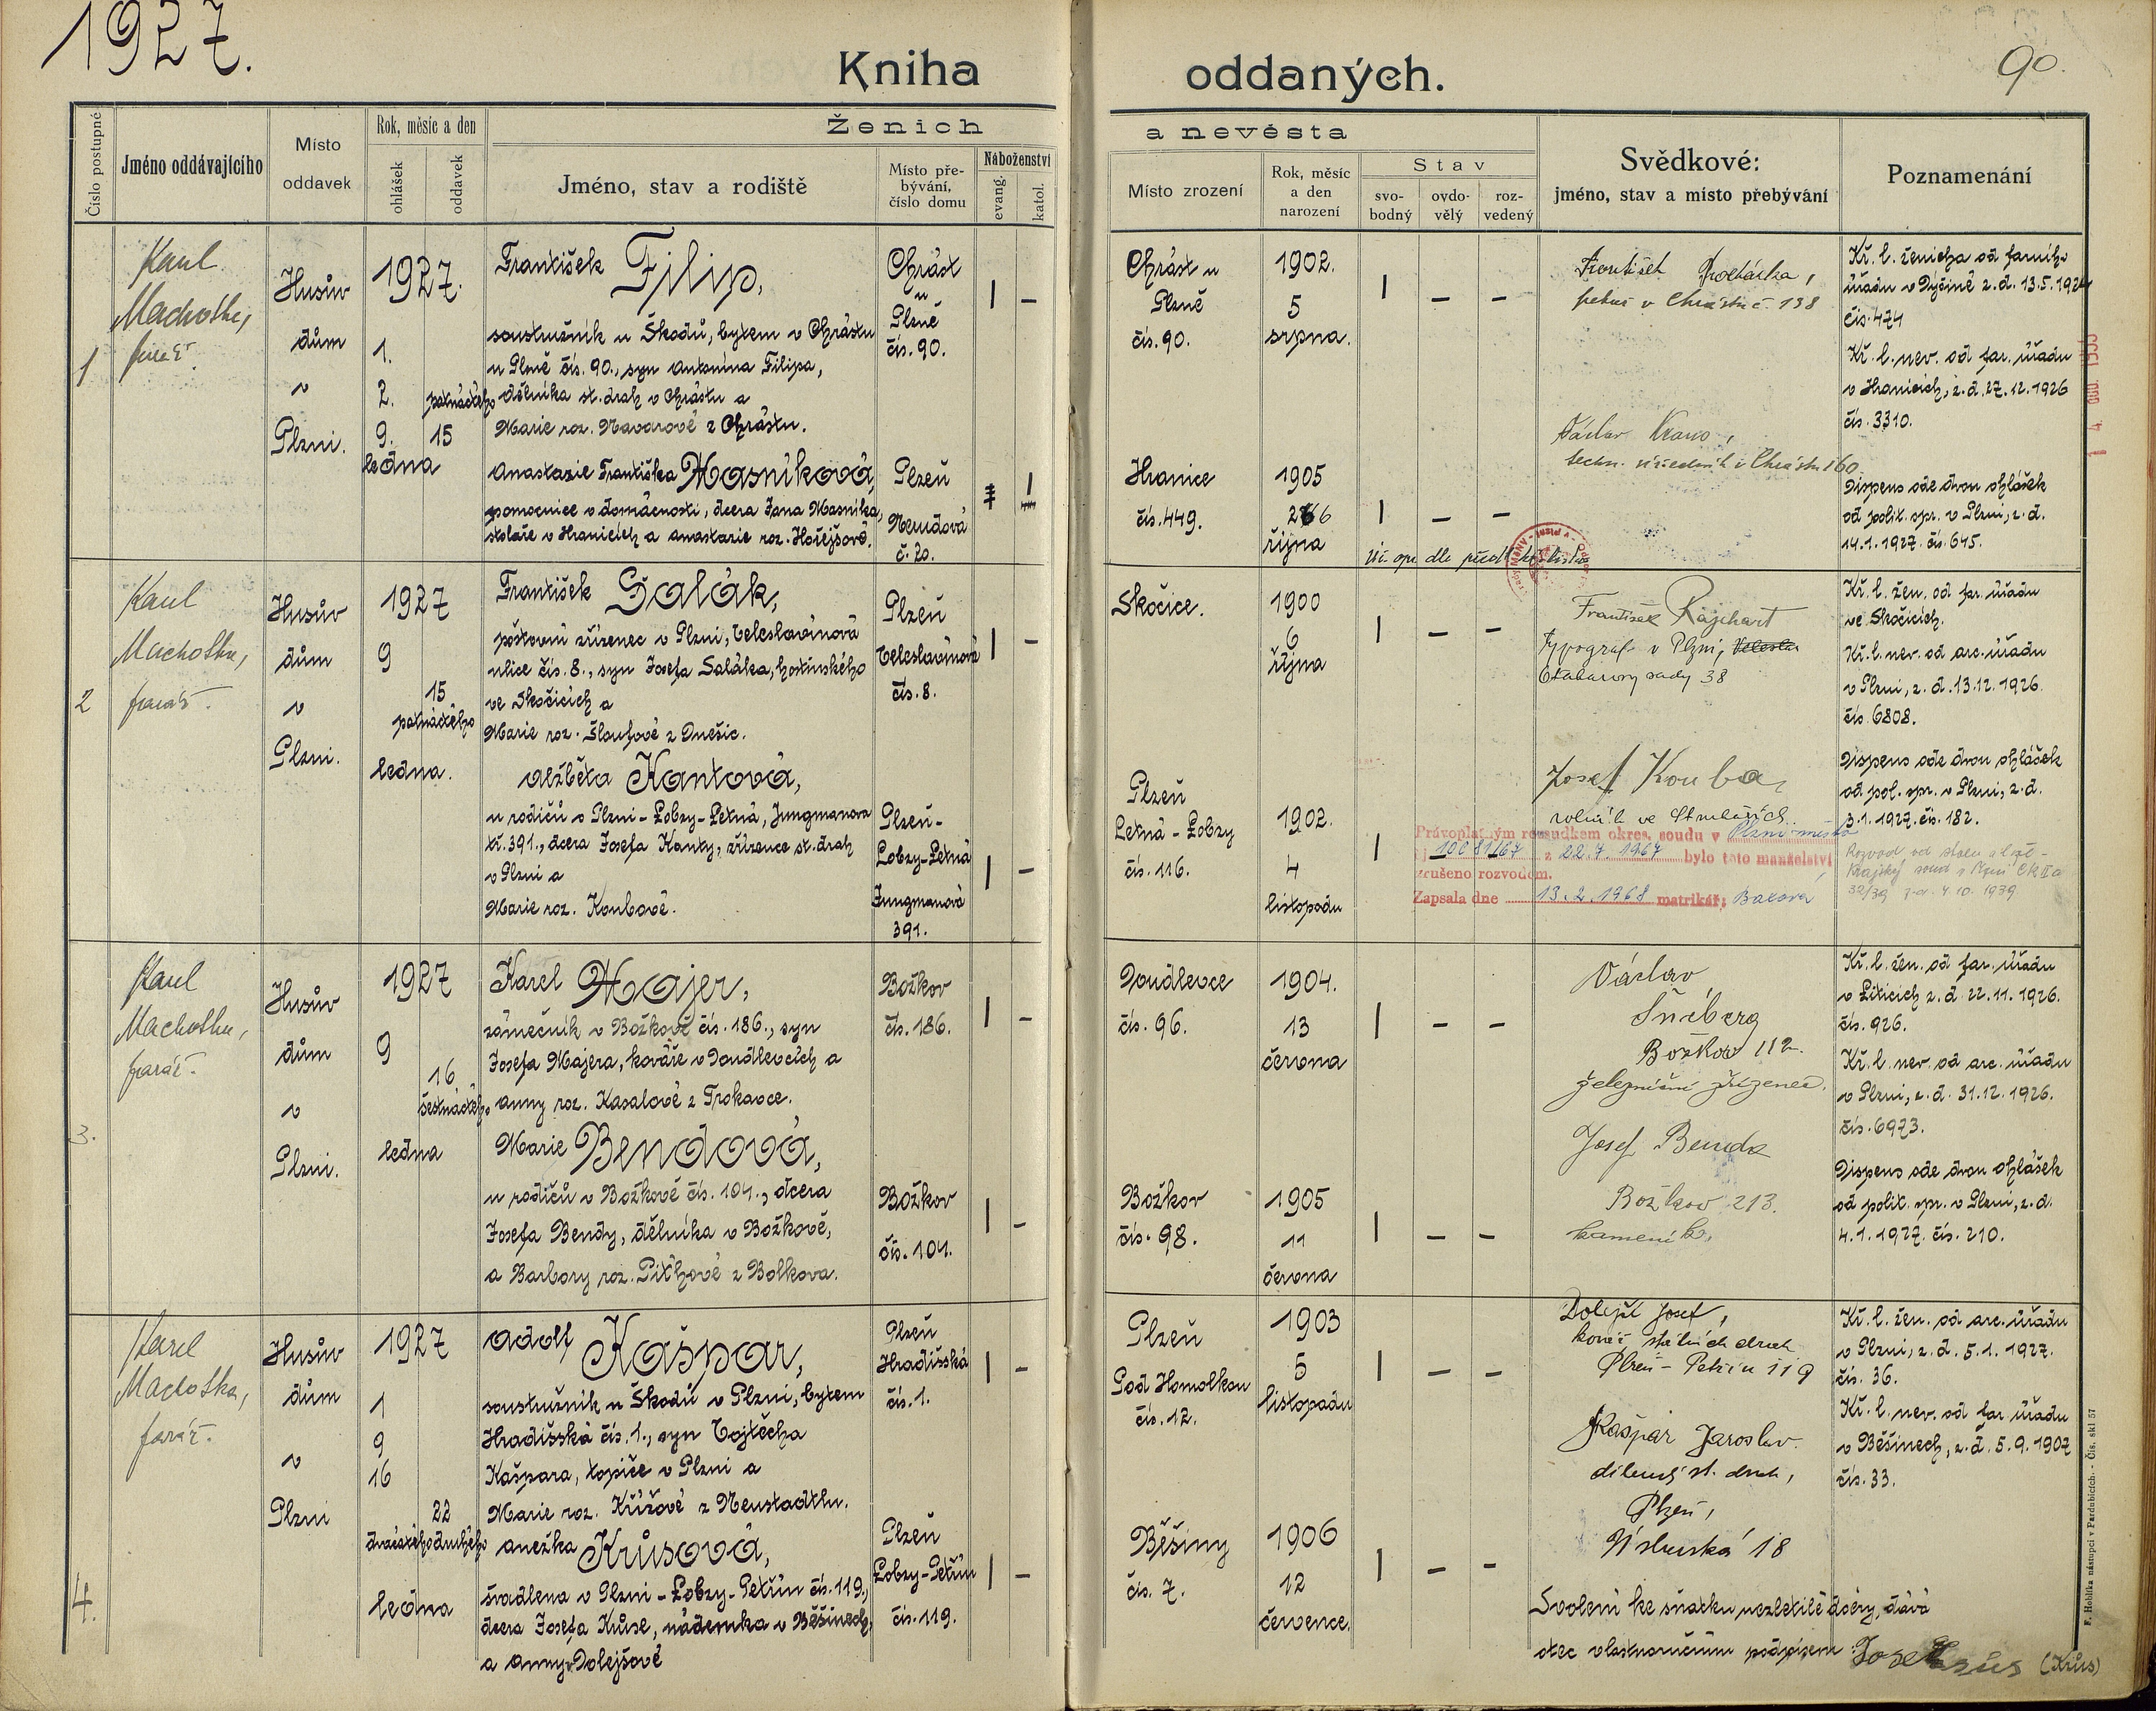 1927.
Kniha oddaných.
90.
Číslo postupné
Jméno oddávajícího
Místo
oddavek
Rok, měsíc a den
ohlášek
oddavek
Ženich
a nevěsta
Jméno, stav a rodiště
Místo pře-
bývání,
číslo domu
Náboženství
evang.
katol.
Místo zrození
Rok, měsíc
a den
narození
Stav
svo-
bodný
ovdo-
vělý
roz-
vedený
Svědkové:
jméno, stav a místo přebývání
Poznamenání
1
Machotka,
farář
Husův
dům
v
Plzni.
1927.
1.
2.
9.
patnáctého
15
ledna
František Filip,
soustružník u Škodů, bytem v Chrástu
u Plzně čís. 90., syn Antonína Filipa,
dělníka st. drah v Chrástu a
Marie roz. Navarové z Chrástu.
Chrást
u
Plzně
čís. 90.
| –
Chrást u
Plzně
čís. 90.
1902.
5
srpna.
| – –
František Procházka,
pekař v Chrástu č. 138
Kř. l. ženicha od farního
úřadu v Dýšině z. d. 13.5.1924
čís. 474
Kř. l. nev. od far. úřadu
v Hranicích, z. d. 27.12.1926
čís. 3310.
Anastazie Františka Masníková,
pomocnice v domácnosti, dcera Jana Masníka,
stoláře v Hranicích a Anastazie roz. Hořejšové.
Plzeň
Nerudova
č. 20.
Hranice
čís. 449.
1905
26
října
| – –
Václav Kraus,
techn. úředník v Chrástu 160
Dispens ode dvou ohlášek
od polit. spr. v Plzni, z. d.
14.1.1927. čís. 645.
2
Machotka,
farář.
Husův
dům
v
Plzni.
1927
9
15
patnáctého
ledna.
František Salák,
poštovní zřízenec v Plzni, Veleslavínova
ulice čís. 8., syn Josefa Saláka, hostinského
ve Skočicích a
Marie roz. Šloufové z Dnešic.
Plzeň
Veleslavínova
čís. 8.
| –
Skočice.
1900
6
října
| – –
František Rajchart
typograf v Plzni,
sady 38
Kř. l. žen. od far. úřadu
ve Skočicích.
Kř. l. nev. od arc. úřadu
v Plzni, z. d. 13.12.1926.
čís. 6808.
Alžběta Kantová,
u rodičů v Plzni-Lobzy-Letná, Jungmanova
tř. 391., dcera Josefa Kanty, zřízence st. drah
v Plzni a
Marie roz. Koubové.
Plzeň-
Lobzy-Letná
Jungmanova
391.
| –
Plzeň
Letná-Lobzy
čís. 116.
1902.
4
listopadu
|
Josef Kouba,
rolník ve
Dispens ode dvou ohlášek
od pol. spr. v Plzni, z. d.
3.1.1927. čís. 182.
Právoplatným rozsudkem okres. soudu v Plzni-město
z 22.7.1967 bylo toto manželství
zrušeno rozvodem.
Zapsala dne 13.2.1968 matrikář:
3.
Machotka,
farář.
Husův
dům
v
Plzni.
1927
9
16
šestnáctého
ledna
Karel Majer,
zámečník v Božkově čís. 186., syn
Josefa Majera, kováře v Doudlevcích a
Anny roz. Kasalové z Prokavce.
Božkov
čís. 186.
| –
Doudlevce
čís. 96.
1904.
13
června
| – –
Václav
Šnéberg
Božkov 112.
železniční zřízenec.
Kř. l. žen. od far. úřadu
v Liticích z. d. 22.11.1926.
čís. 926.
Kř. l. nev. od arc. úřadu
v Plzni, z. d. 31.12.1926.
čís. 6973.
Marie Bendová,
u rodičů v Božkově čís. 104., dcera
Josefa Bendy, dělníka v Božkově,
a Barbory roz. Pithové z Bolkova.
Božkov
čís. 104.
| –
Božkov
čís. 98.
1905
11
června
| – –
Josef Benda
Božkov 213.
kameník.
Dispens ode dvou ohlášek
od polit. spr. v Plzni, z. d.
4.1.1927. čís. 210.
4.
Karel
Machotka,
farář.
Husův
dům
v
Plzni
1927
1
9
16
22
dvacátého druhého
ledna
Adolf Kašpar,
soustružník u Škodů v Plzni, bytem
Hradišská čís. 1., syn Vojtěcha
Kašpara, topiče v Plzni a
Marie roz. Křížové z Neustadtlu.
Plzeň
Hradišská
čís. 1.
| –
Plzeň
Pod Homolkou
čís. 12.
1903
5
listopadu
| – –
Dolejší Josef,
kovář státních drah
Plzeň-Petřín 119
Kř. l. žen. od arc. úřadu
v Plzni, z. d. 5.1.1927.
čís. 36.
Kř. l. nev. od far. úřadu
v Běšinech, z. d. 5.9.1907
čís. 33.
Anežka Krůsová,
švadlena v Plzni-Lobzy-Petřín čís. 119.,
dcera Josefa Krůse, nádeníka v Běšinech,
a Anny Dolejšové
Plzeň
Lobzy-Petřín
čís. 119.
| –
Běšiny
čís. 7.
1906
12
července.
| – –
Kašpar Jaroslav.
st. drah,
Plzeň,
18
Svolení ke sňatku nezletilé dcery, dává
otec vlastnoručním podpisem: Josef Krůs (Krůs)
F. Hoblíka nástupci v Pardubicích. - Čís. skl 57